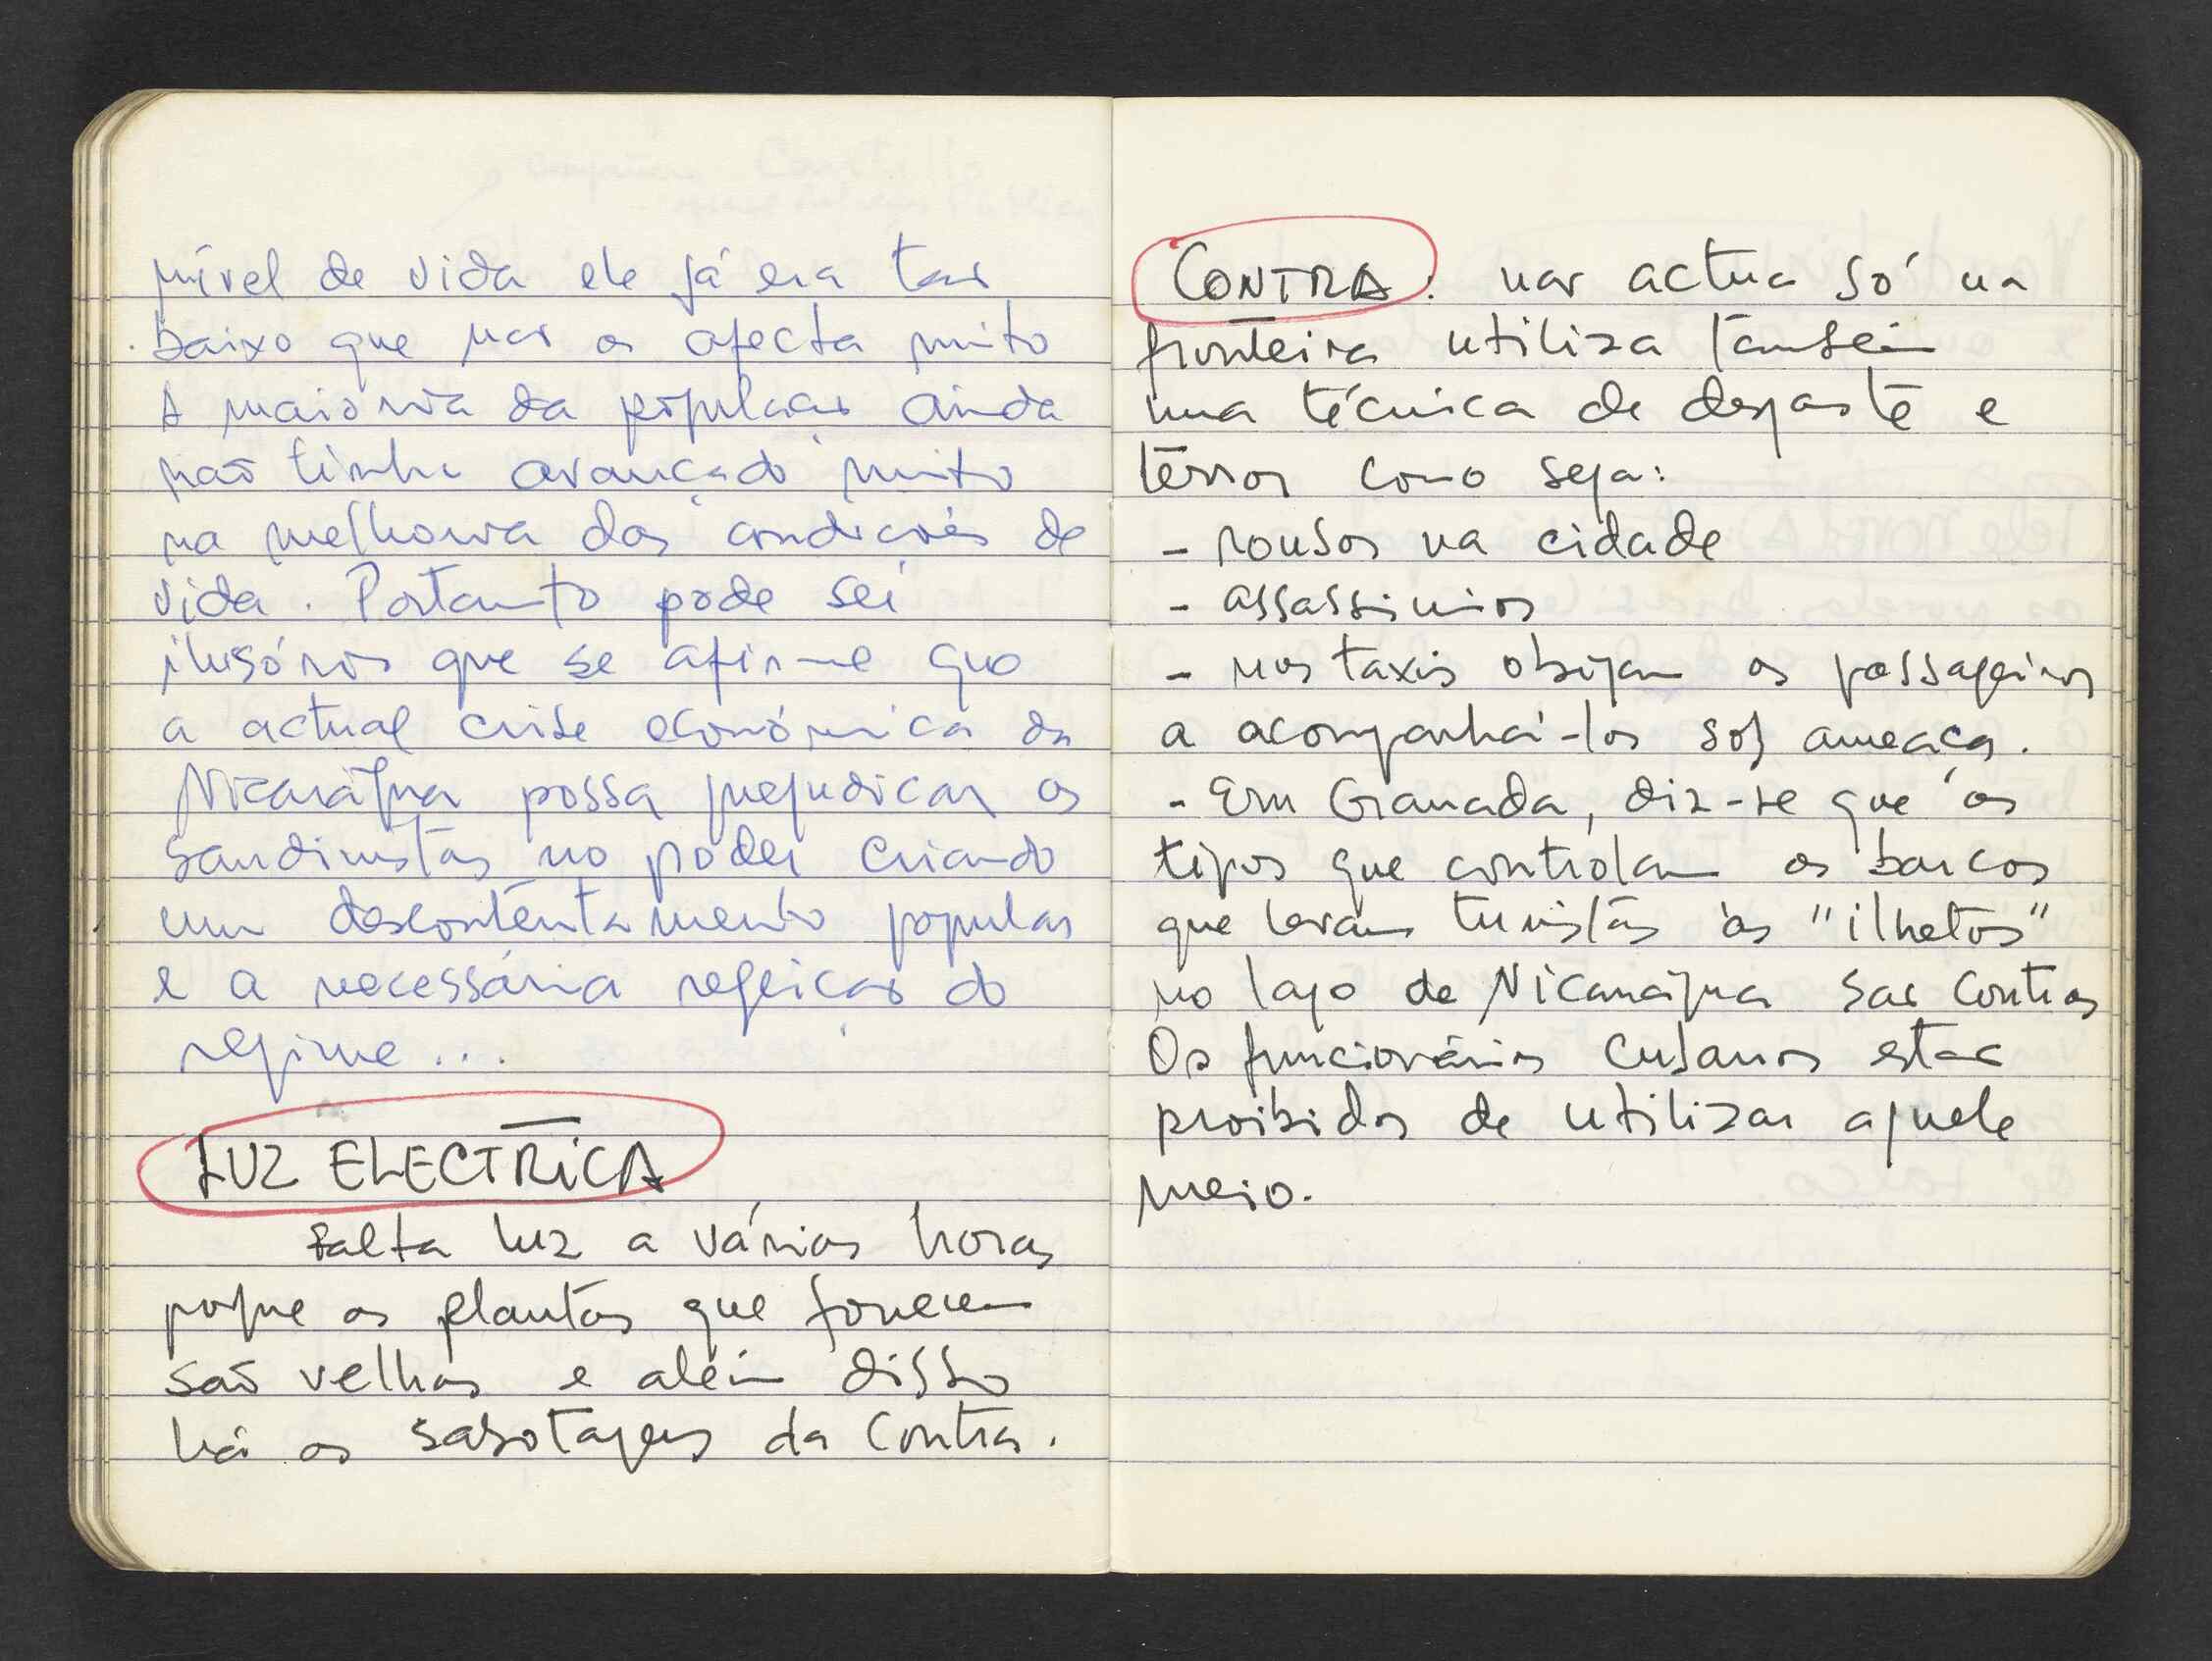 nível de vida ele já era tão
baixo que não os afecta muito
A maioria da população ainda
não tinha avançado muito
na melhoria das condições de
vida. Portanto pode ser
ilusório que se afirme que
a actual crise económica da
Nicarágua possa prejudicar os
sandinistas no poder criando
um descontentamento popular
e a necessária rejeição do
regime...
LUZ ELECTRICA
Falta luz a várias horas
porque as plantas que fornecem
são velhas e além disso
há as sabotagens da Contra.
CONTRA: não actua só na
fronteira utiliza também
uma técnica de desgaste e
terror como seja:
- roubos na cidade
- assassinios
- nos taxis obrigam os passageiros
a acompanhá-los sob ameaça.
- Em Granada, diz-se que os
tipos que controlam os barcos
que levam turistas às "ilhetas"
no lago de Nicarágua são Contras
Os funcionários cubanos estão
proibidos de utilizar aquele
meio.